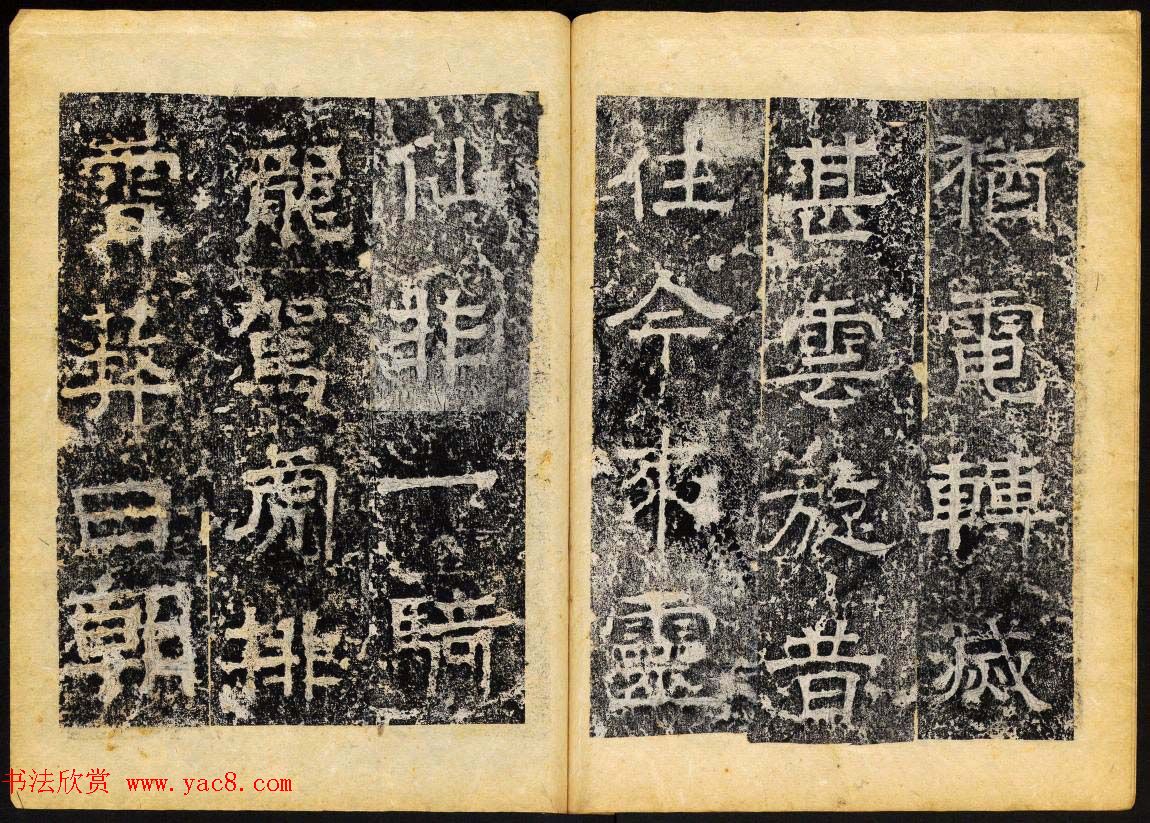 猶電轉滅
甚雲旋昔
往今來靈
仙非一騎
龍駕鹿排
霄拜日朝
书法欣赏 www.yac8.com